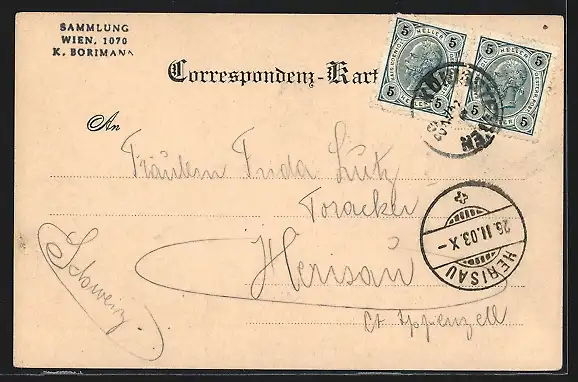 SAMMLUNG
WIEN, 1070
K. BORIMANN
Correspondenz-Karte
5 HELLER 5
5 5
5 HELLER 5
5 5
An
Fräulein Frida Lutz
Toracker
Herisau
Ct Appenzell
Schweiz
26.II.03.X-
HERISAU